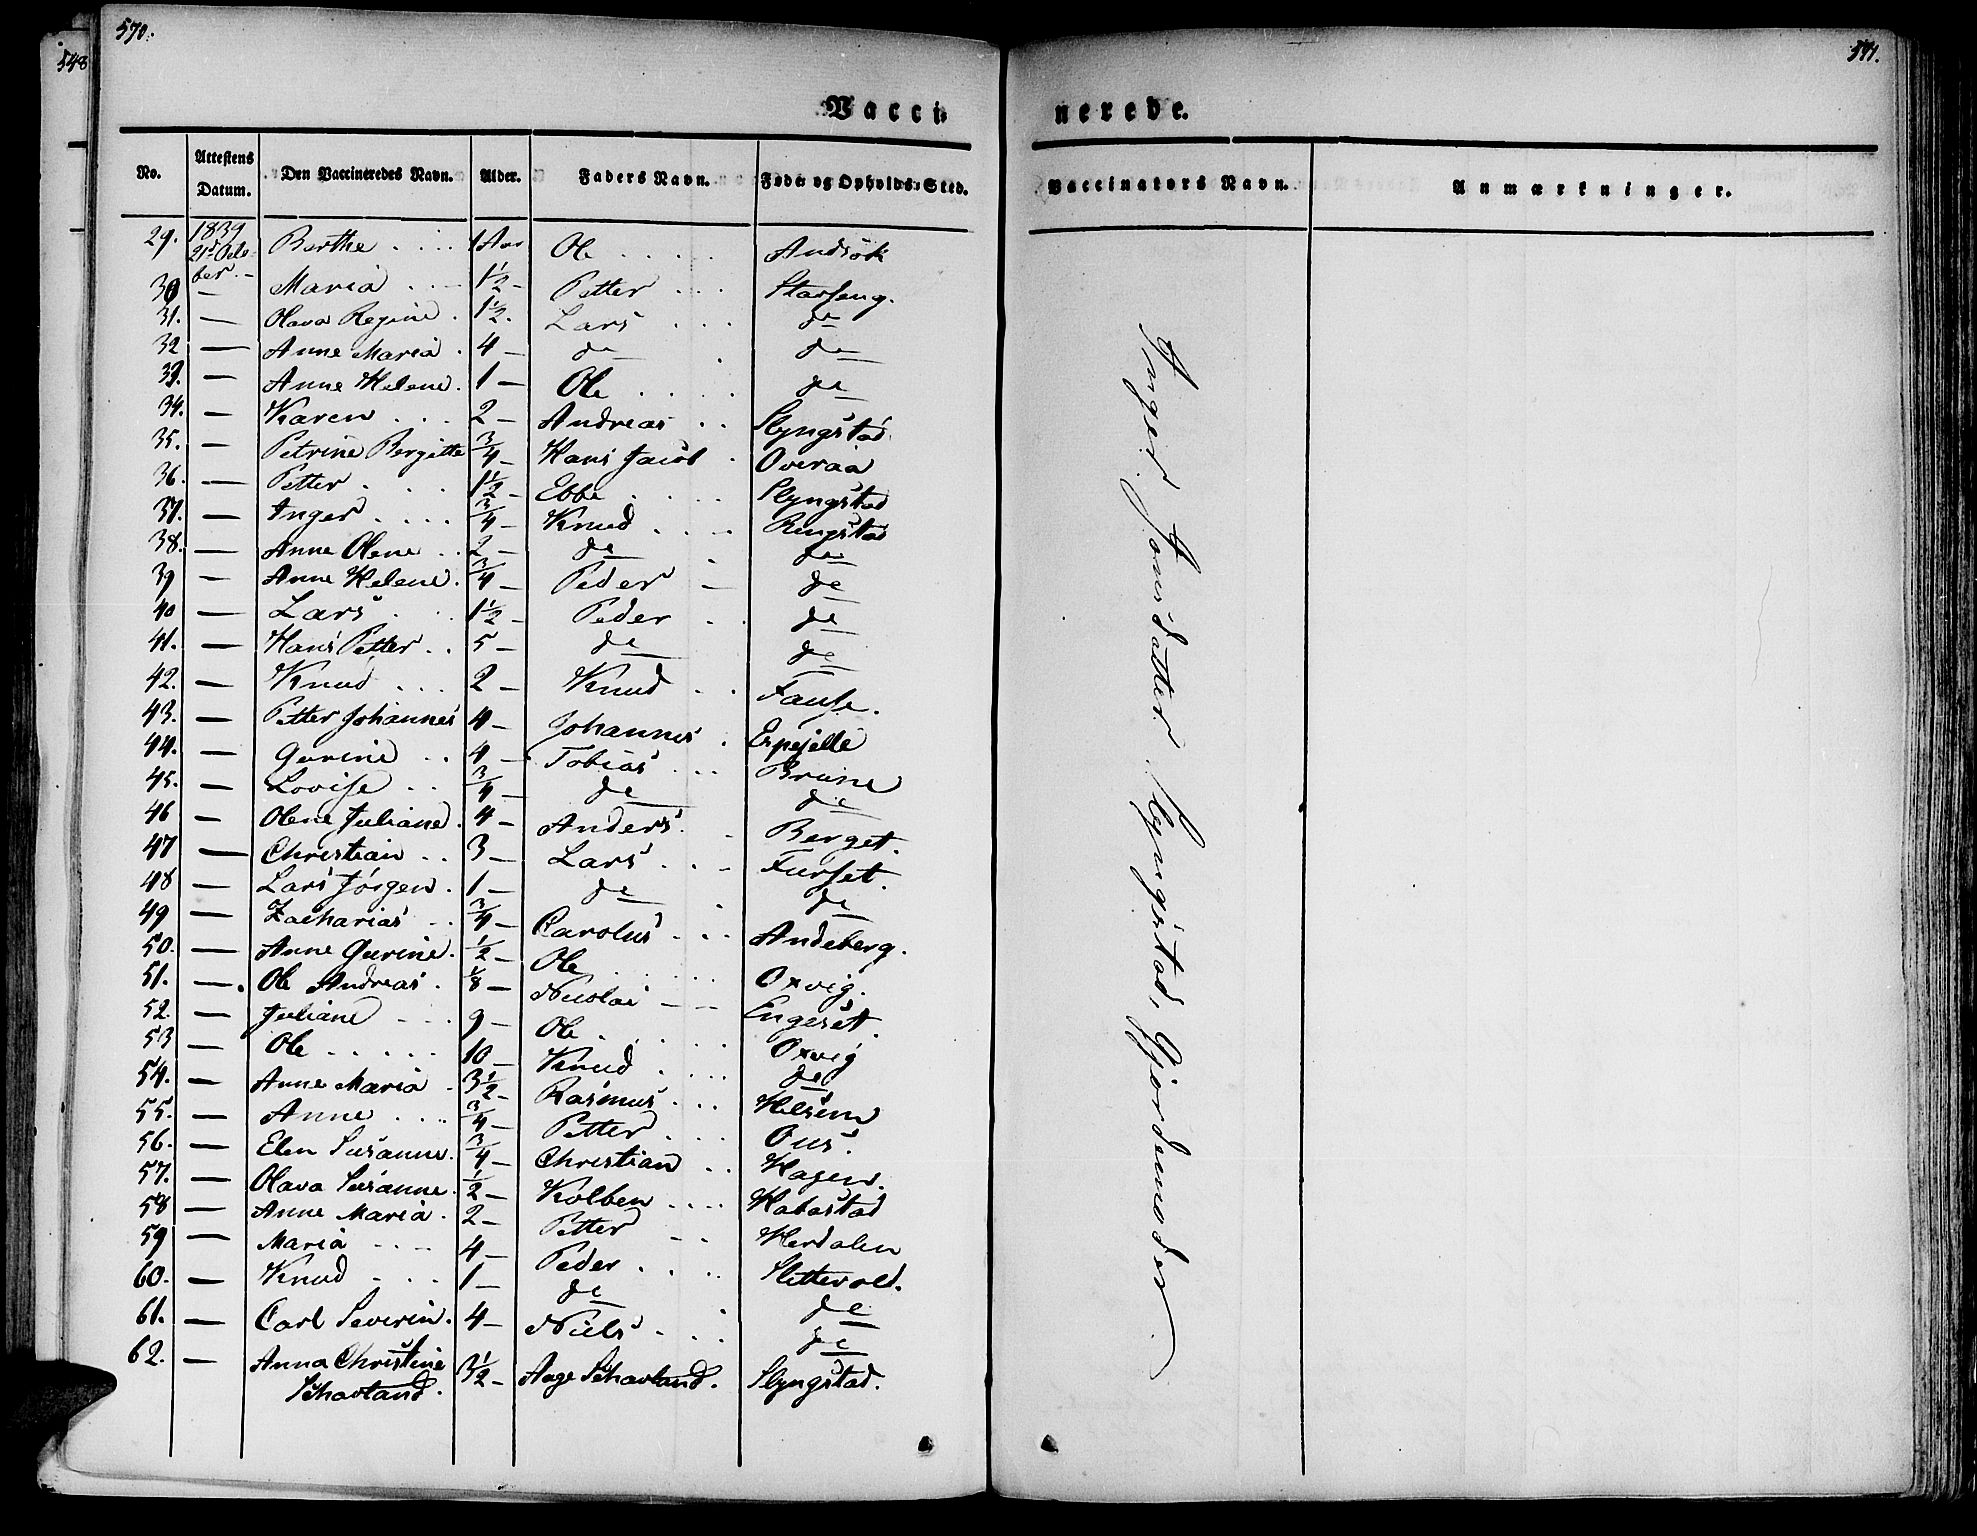 570.
548
571.
Vacci-
nerede.
No. Attestens Datum. Den Vaccineredes Navn. Alder. Faders Navn. Føde- og Opholds-Sted.
Vaccinators Navn. Anmærkninger.
29. 1839 21de October. — Berthe . . . . 1 Aar Ole . . . . .
30 — Maria . . . 1½ — Petter . . . Starseng.
31. — Olava Regine . 1½. Lars . . . de
32 — Anne Maria . 4 — de . de
33. — Anne Helene . 1 — Ole . . . . de
34. — Karen . . . 2 — Andreas . . Slyngstad
35. — Petrine Bergitte ¾ — Hans Jacob . Overaa
36. — Petter . . . 1½ — Ebbe . . . . Slyngstad
37. — Inger . . . . ¾ — Knud . . . — Ringstad
38. — Anne Olene . . 2 — de de
39 — Anne Helene . ¾ — Peder — de
40 — Lars . . 1½ — Peder . . de
41. — Hans Petter . . 5 — de de
42. — Knud . . . 2 — Knud . . Fause.
43. — Petter Johannes 4 — Johannes . Espejelle
44. — Gurine . . 4 — Tobias . . . Brune
45. — Lovise . . ¾ — de de
46 — Olene Juliane . 4 — Anders . — Berget.
47 — Christian . . 3 — Lars . . — Furset.
48 — Lars Jørgen . 1 — de . de
49 — Zacharias . . ¾ — Carolus . . . Andeberg.
50. — Anne Gurine . ½ — Ole . . . . Oxvig.
51. — Ole Andreas . ⅛ — Nicolai — — Engeset.
52. — Juliane — . . 9 — Ole . . . . . Oxvig
53 — Ole . . . . . 10 — Knud . . . . de
54. — Anne Maria . 3½ — Rasmus . . .
55. — Anne . . . . ¾ — Petter . . . Ous.
56. — Elen Susanne . ¾ — Christian . . Hagen.
57. — Olava Susanne . ½ — Kolben . . . . Habostad
58 — Anne Maria . 2 — Petter — . Herdalen
59 — Maria — . . — 4 — Peder . . . . Slettevold.
60. — Knud — . . 1 — de de
61. — Carl Severin . 4 — Niels . . . de
62. — Anna Christine Schavland . 3½ — Aage Schavland . Slyngstad.
Inger Jonsdatter Slyngstad, Gjordemoder